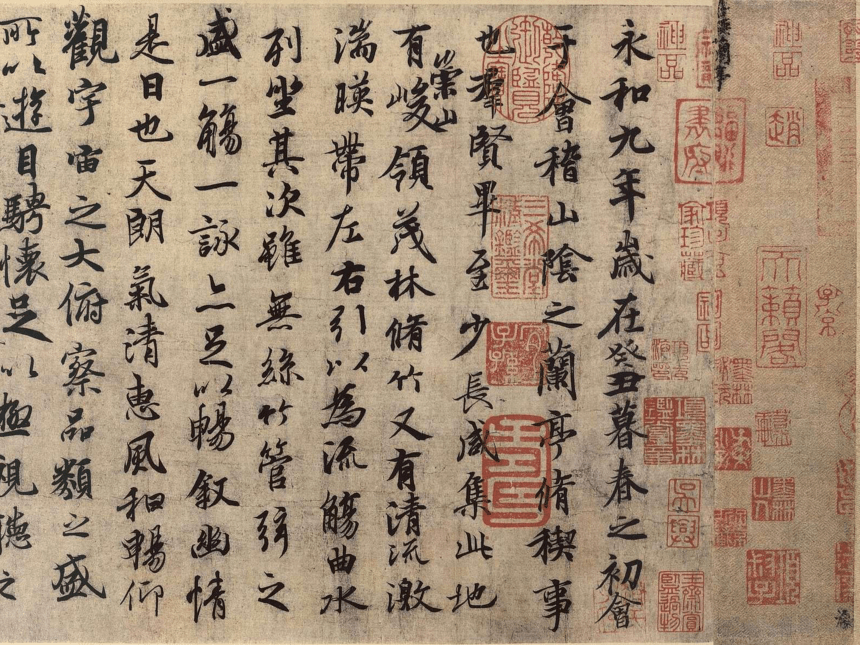 神品
天籟閣
神品
永和九年歲在癸丑暮春之初會
于會稽山陰之蘭亭脩稧事
也羣賢畢至少長咸集此地
有崇山峻領茂林脩竹又有清流激
湍暎帶左右引以為流觴曲水
列坐其次雖無絲竹管弦之
盛一觴一詠亦足以暢敘幽情
是日也天朗氣清惠風和暢仰
觀宇宙之大俯察品類之盛
所以遊目騁懷足以極視聽之